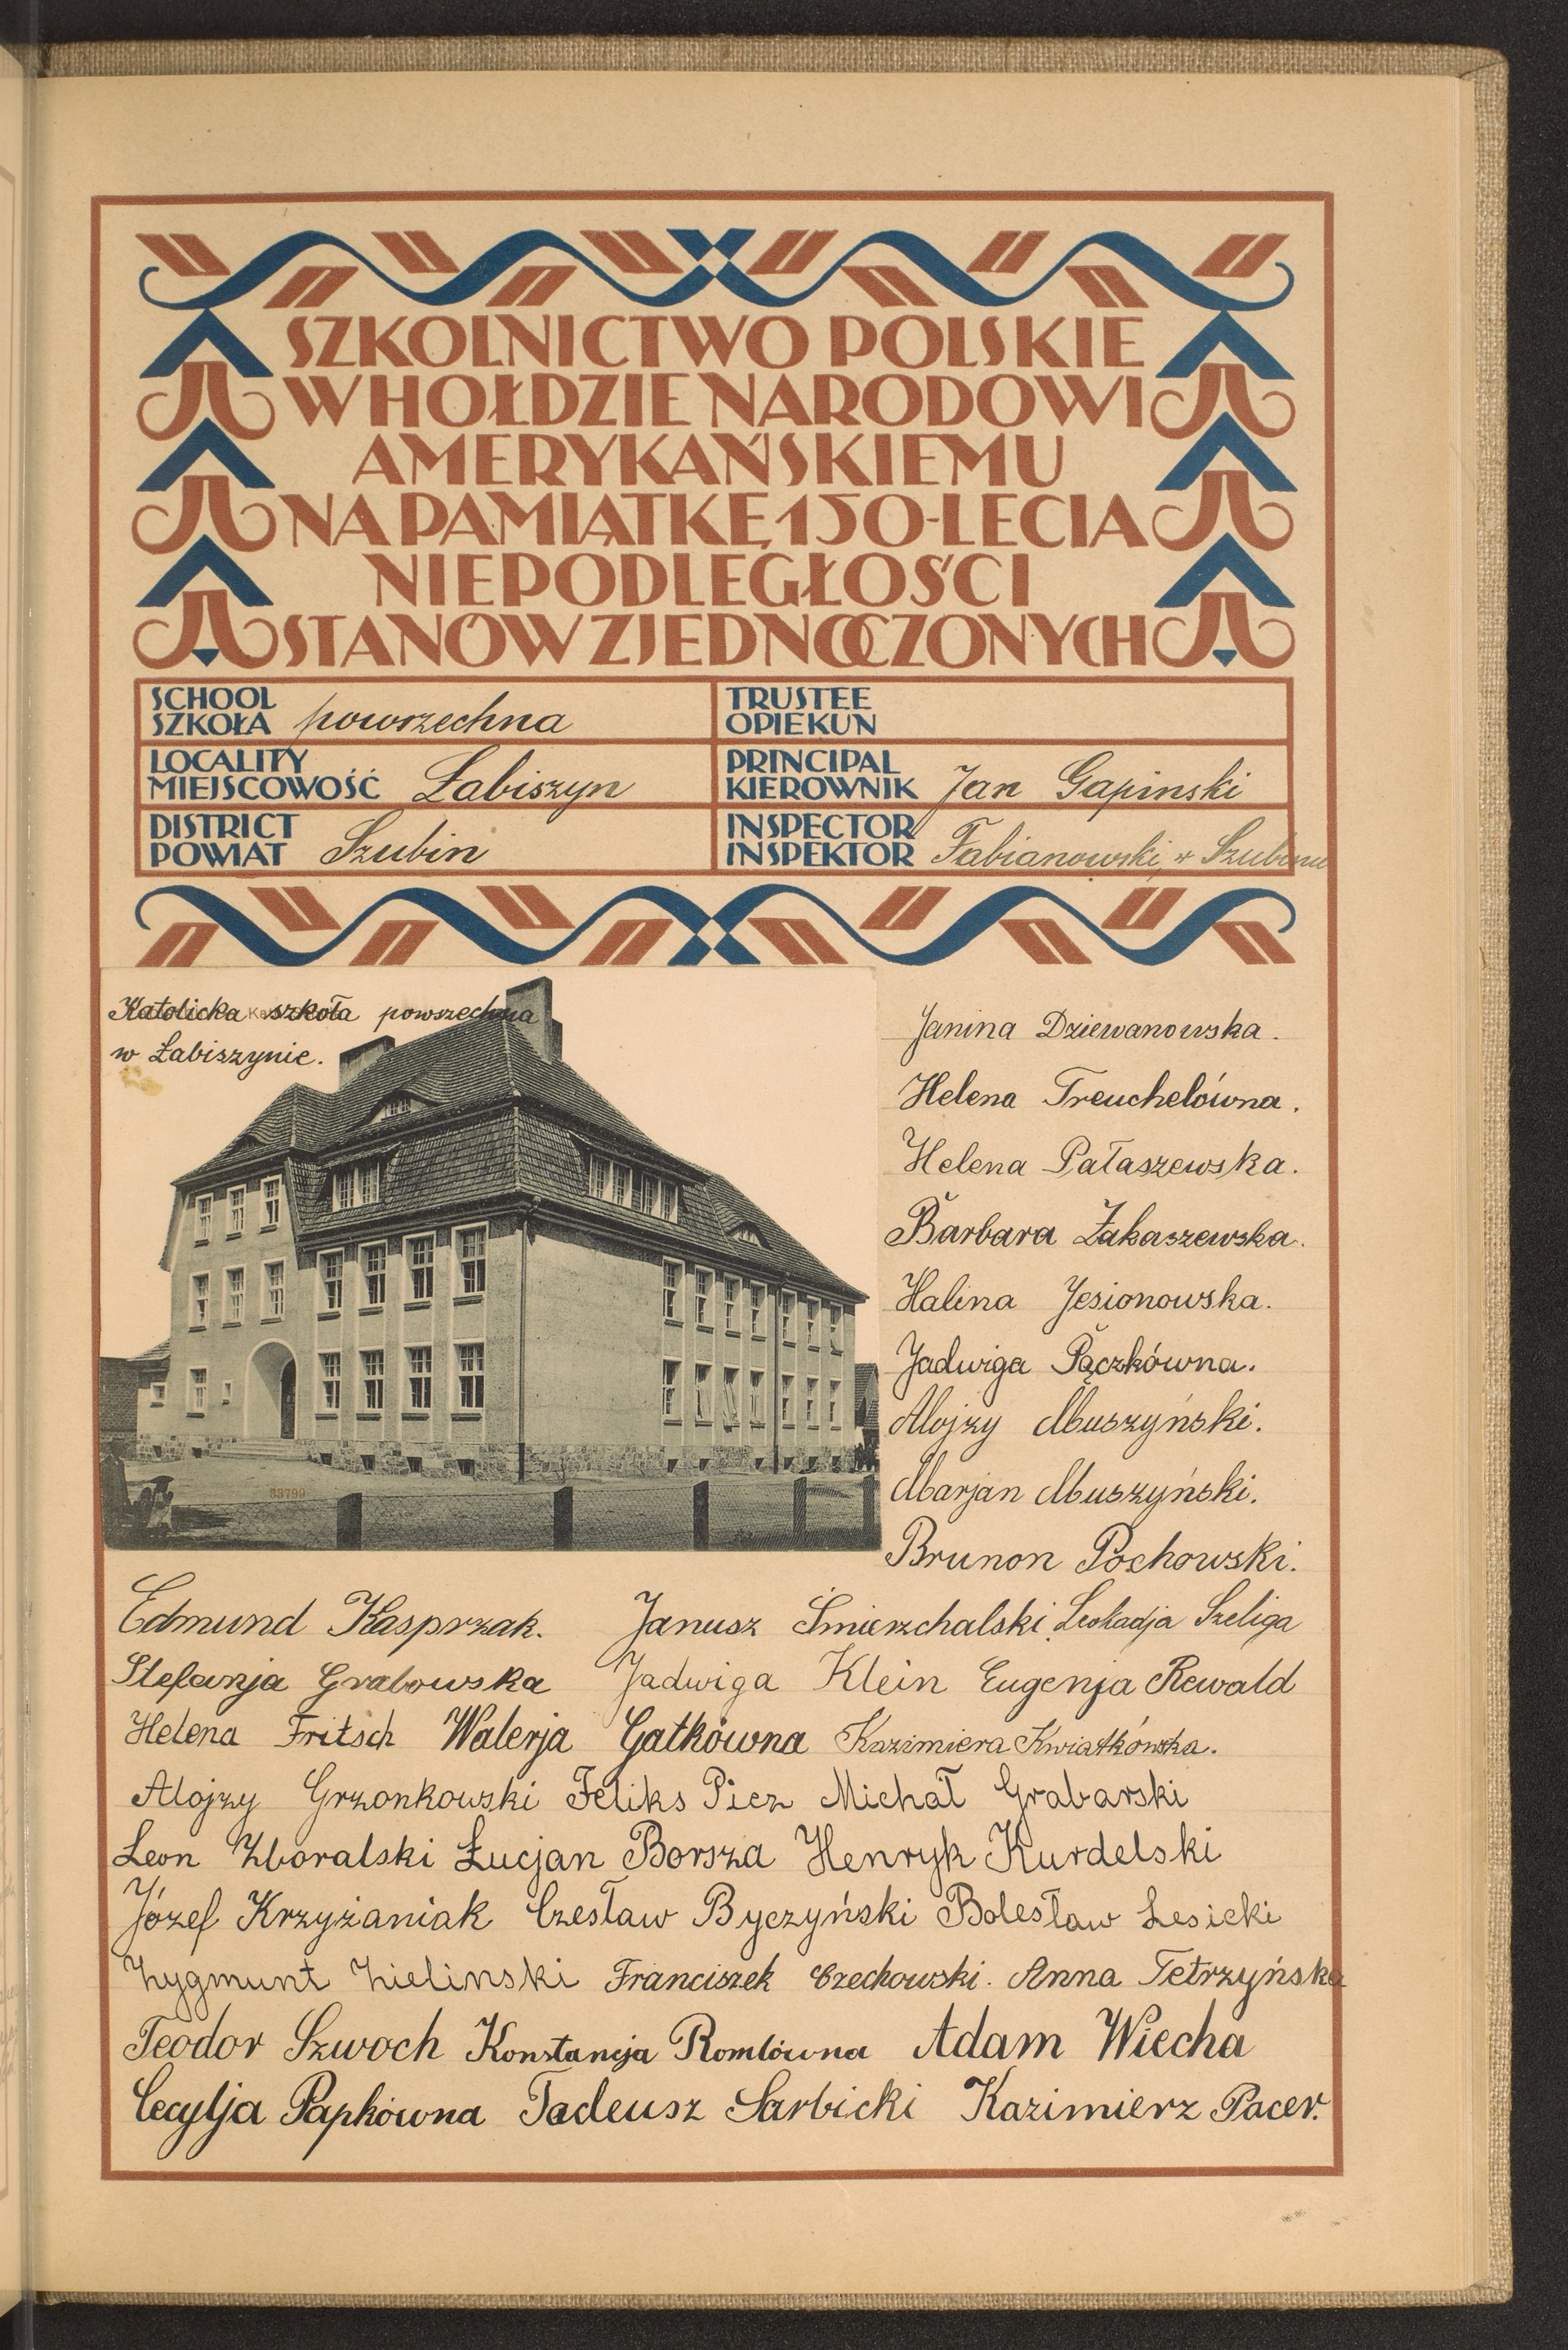 SZKOLNICTWO POLSKIE
W HOŁDZIE NARODOWI
AMERYKAŃSKIEMU
NA PAMIĄTKĘ 150-LECIA
NIEPODLEGŁOŚCI
STANÓW ZJEDNOCZONYCH
SCHOOL
SZKOŁA powszechna
TRUSTEE
OPIEKUN
LOCALITY
MIEJSCOWOŚĆ Łabiszyn
PRINCIPAL
KIEROWNIK Jan Gapinski
DISTRICT
POWIAT Szubin
INSPECTOR
INSPEKTOR Fabianowski, w Szubinu
Katolicka szkoła powszechna
w Łabiszynie.
33799
Janina Dziewanowska.
Helena Treuchelówna.
Helena Pałaszewska.
Barbara Żakaszewska.
Halina Jesionowska.
Jadwiga Pączkówna.
Alojzy Muszyński.
Marjan Muszyński.
Brunon Pochowski.
Edmund Kasprzak. Janusz Śmierzchalski, Leokadja Szeliga
Stefanja Grabowska Jadwiga Klein Eugenja Rewald
Helena Fritsch Walerja Gatkówna Kazimiera Kwiatkówska.
Alojzy Grzonkowski Feliks Picz Michał Grabarski
Leon Zboralski Łucjan Borsza Henryk Kurdelski
Józef Krzyżaniak Czesław Byczyński Bolesław Lesicki
Zygmunt Zielinski Franciszek Czechowski. Anna Tetrzyńska
Teodor Szwoch Konstancja Romlówna Adam Wiecha
Cecylja Papkówna Tadeusz Sarbicki Kazimierz Pacer.